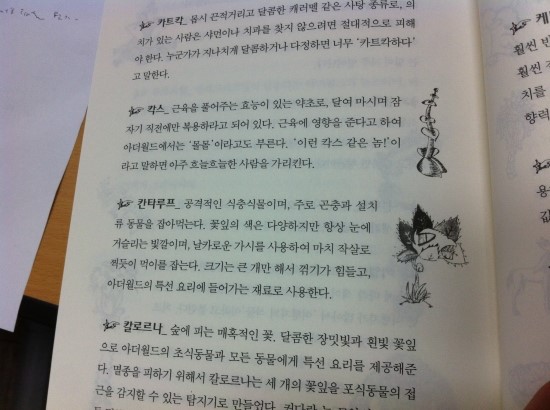 카트칵_ 몹시 끈적거리고 달콤한 캐러멜 같은 사탕 종류로, 의
치가 있는 사람은 샤먼이나 치과를 찾지 않으려면 절대적으로 피해
야 한다. 누군가가 지나치게 달콤하거나 다정하면 너무 '카트칵하다'
고 말한다.
칵스_ 근육을 풀어주는 효능이 있는 약초로, 달여 마시며 잠
자기 직전에만 복용하라고 되어 있다. 근육에 영향을 준다고 하여
아더월드에서는 '물몸'이라고도 부른다. '이런 칵스 같은 놈!'이
라고 말하면 아주 흐늘흐늘한 사람을 가리킨다.
칸타루프_ 공격적인 식충식물이며, 주로 곤충과 설치
류 동물을 잡아먹는다. 꽃잎의 색은 다양하지만 항상 눈에
거슬리는 빛깔이며, 날카로운 가시를 사용하여 마치 작살로
찍듯이 먹이를 잡는다. 크기는 큰 개만 해서 꺾기가 힘들고,
아더월드의 특선 요리에 들어가는 재료로 사용한다.
칼로르나_ 숲에 피는 매혹적인 꽃. 달콤한 장밋빛과 흰빛 꽃잎
으로 아더월드의 초식동물과 모든 동물에게 특선 요리를 제공해준
다. 멸종을 피하기 위해서 칼로르나는 세 개의 꽃잎을 포식동물의 접
근을 감지할 수 있는 탐지기로 만들었다.
케
훨씬 빈
훨씬
치를
향력